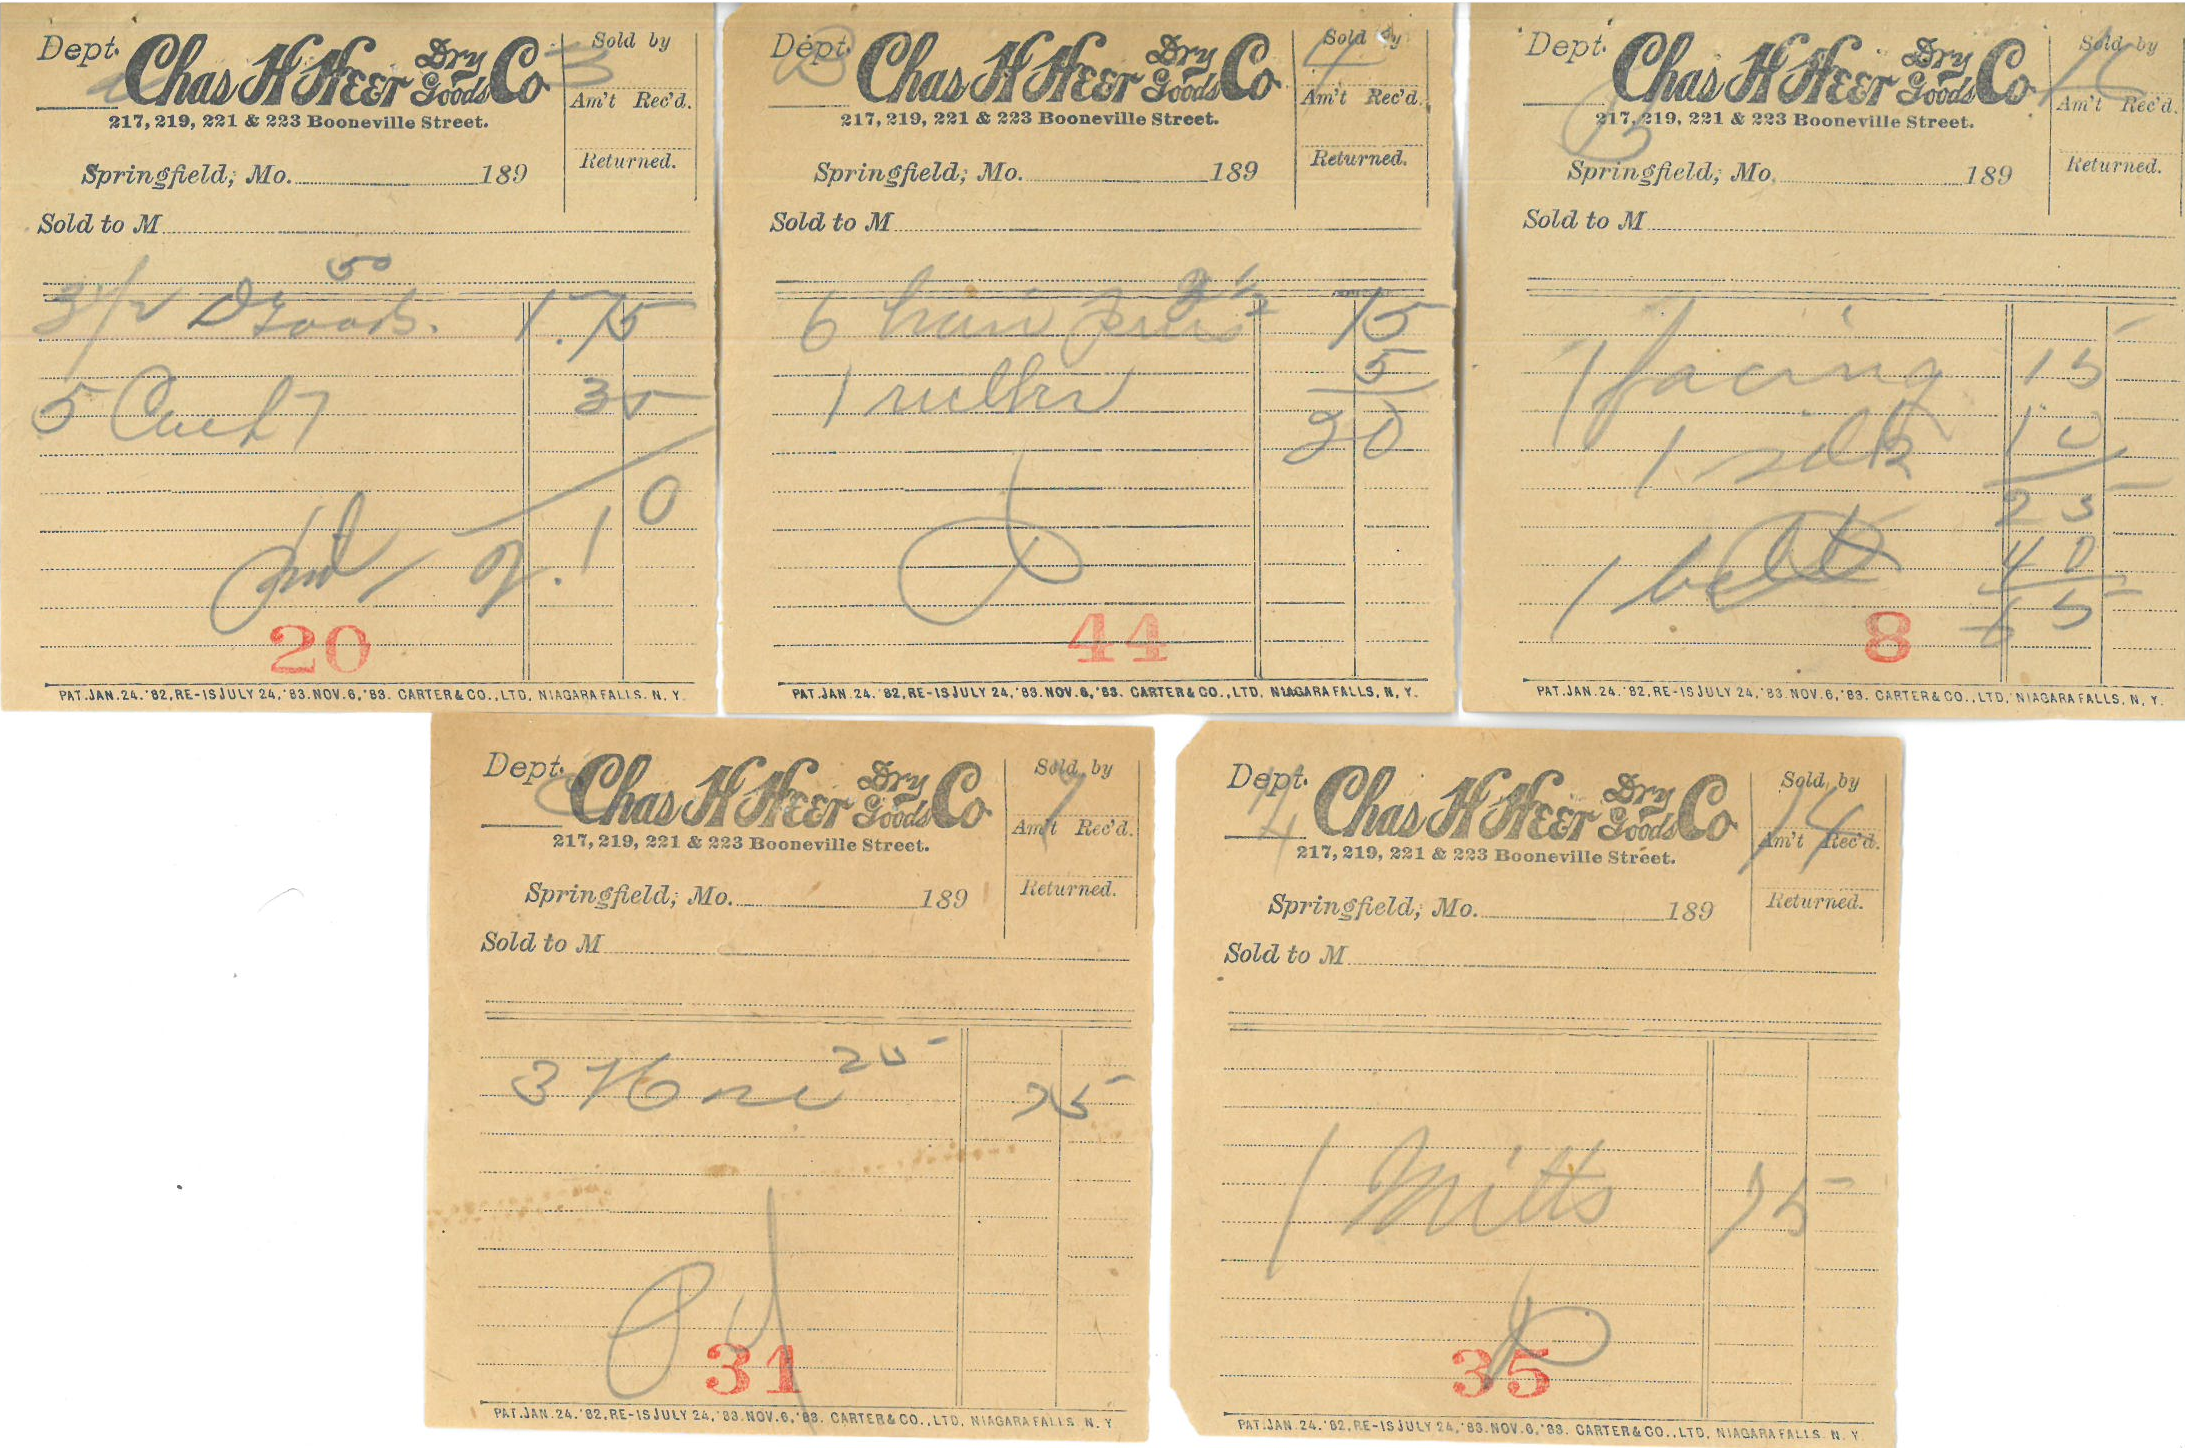 Dept. Chas H Heer Dry Goods Co Sold by
217, 219, 221 & 223 Booneville Street. Am't Rec'd.
Springfield, Mo. 189 Returned.
Sold to M
50
3 1/2 D Goods. 1.75
5 35
pd 2.10
20
PAT. JAN. 24. '82, RE-IS JULY 24, '83. NOV. 6, '83. CARTER & CO., LTD, NIAGARA FALLS. N. Y.
Dept. Chas H Heer Dry Goods Co Sold by
217, 219, 221 & 223 Booneville Street. Am't Rec'd.
Springfield, Mo. 189 Returned.
Sold to M
6 hair pins 2 1/2 15
1 5
20
44
PAT. JAN. 24. '82, RE-IS JULY 24, '83. NOV. 6, '83. CARTER & CO., LTD, NIAGARA FALLS, N. Y.
Dept. Chas H Heer Dry Goods Co Sold by
217, 219, 221 & 223 Booneville Street. Am't Rec'd.
Springfield, Mo. 189 Returned.
Sold to M
1 facing 15
1 silk 10
25
1 belt 40
65
8
PAT. JAN. 24. '82, RE-IS JULY 24, '83. NOV. 6, '83. CARTER & CO., LTD, NIAGARA FALLS, N. Y.
Dept. Chas H Heer Dry Goods Co Sold by
7
217, 219, 221 & 223 Booneville Street. Am't Rec'd.
Springfield, Mo. 189 Returned.
Sold to M
3 Hose 25 75
31
PAT. JAN. 24. '82, RE-IS JULY 24, '83. NOV. 6, '83. CARTER & CO., LTD, NIAGARA FALLS. N. Y.
Dept. Chas H Heer Dry Goods Co Sold by
4 14
217, 219, 221 & 223 Booneville Street. Am't Rec'd.
Springfield, Mo. 189 Returned.
Sold to M
1 Mitts 75
35
PAT. JAN. 24. '82, RE-IS JULY 24, '83. NOV. 6, '83. CARTER & CO., LTD, NIAGARA FALLS. N. Y.